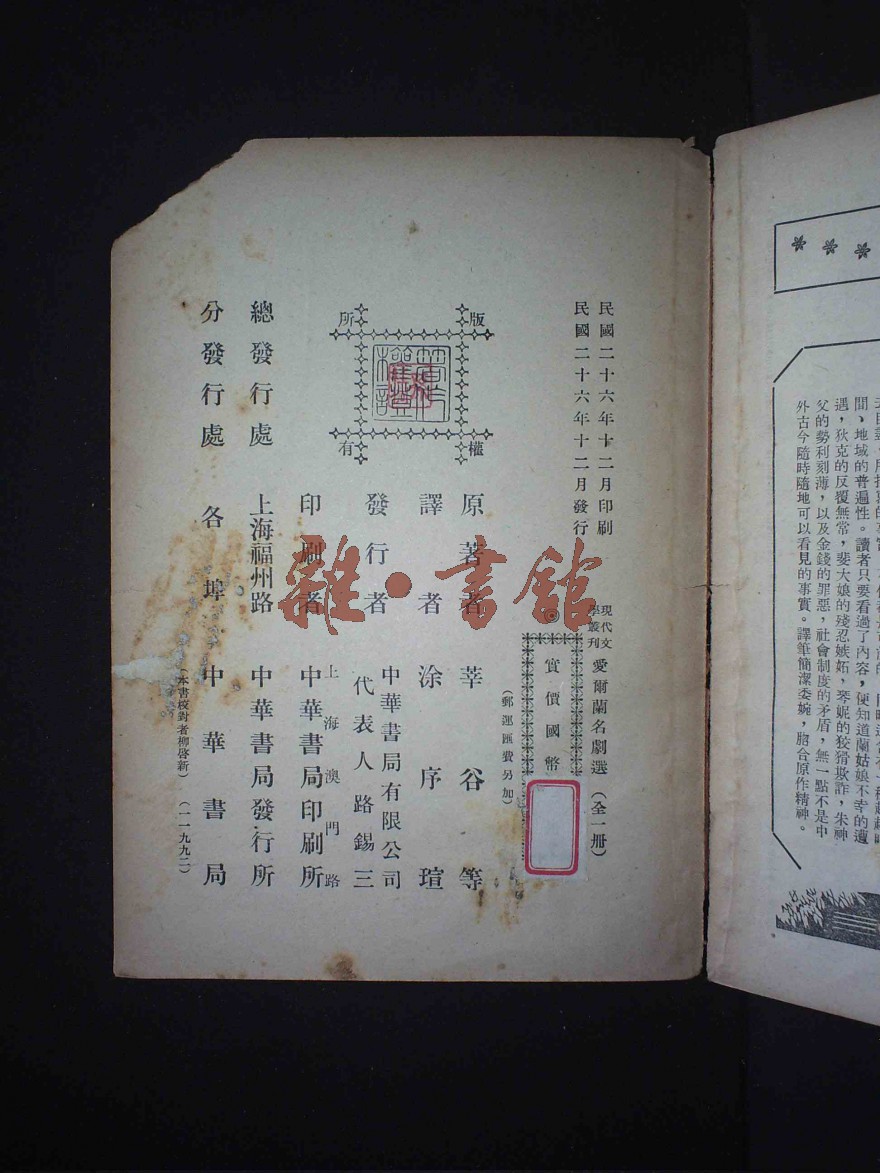 民國二十六年十二月印刷
民國二十六年十二月發行
現代文
學叢刊
愛爾蘭名劇選(全一冊)
實價國幣
(郵運匯費另加)
版權
所有
原著者 莘谷等
譯者 涂序瑄
發行者 中華書局有限公司
代表人路錫三
印刷者 上海澳門路
中華書局印刷所
總發行處 上海福州路 中華書局發行所
分發行處 各埠 中華書局
(本書校對者柳啓新) (一一九九二)
雜·書館
間、地域的普遍性。讀者只要看過了內容,便知道蘭姑娘不幸的遭
遇,狄克的反覆無常,斐大娘的殘忍嫉妬,琴妮的狡猾欺詐,朱神
父的勢利刻薄,以及金錢的罪惡,社會制度的矛盾,無一點不是中
外古今隨時隨地可以看見的事實。譯筆簡潔委婉,脗合原作精神。